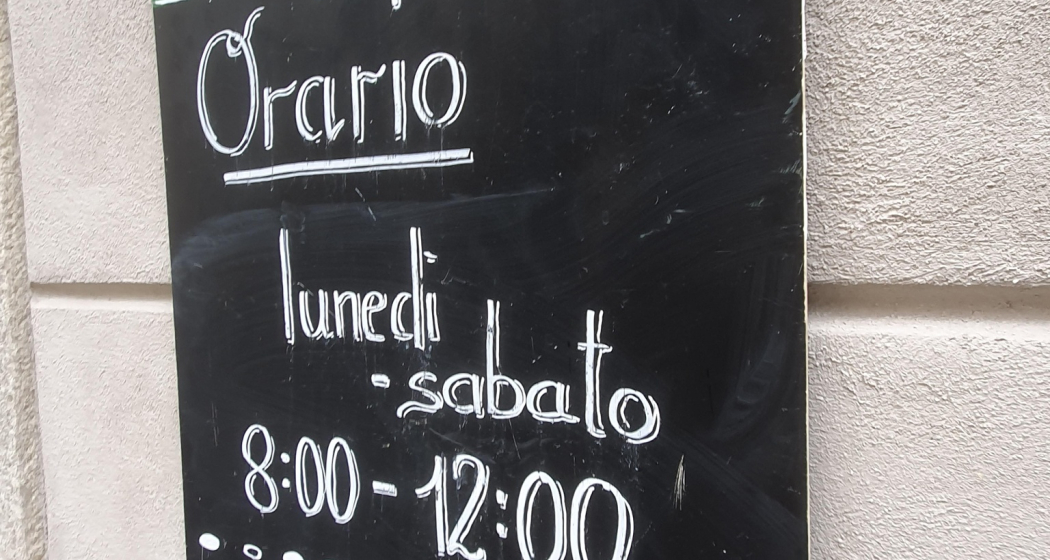 Orario
lunedì
- sabato
8:00 - 12:00